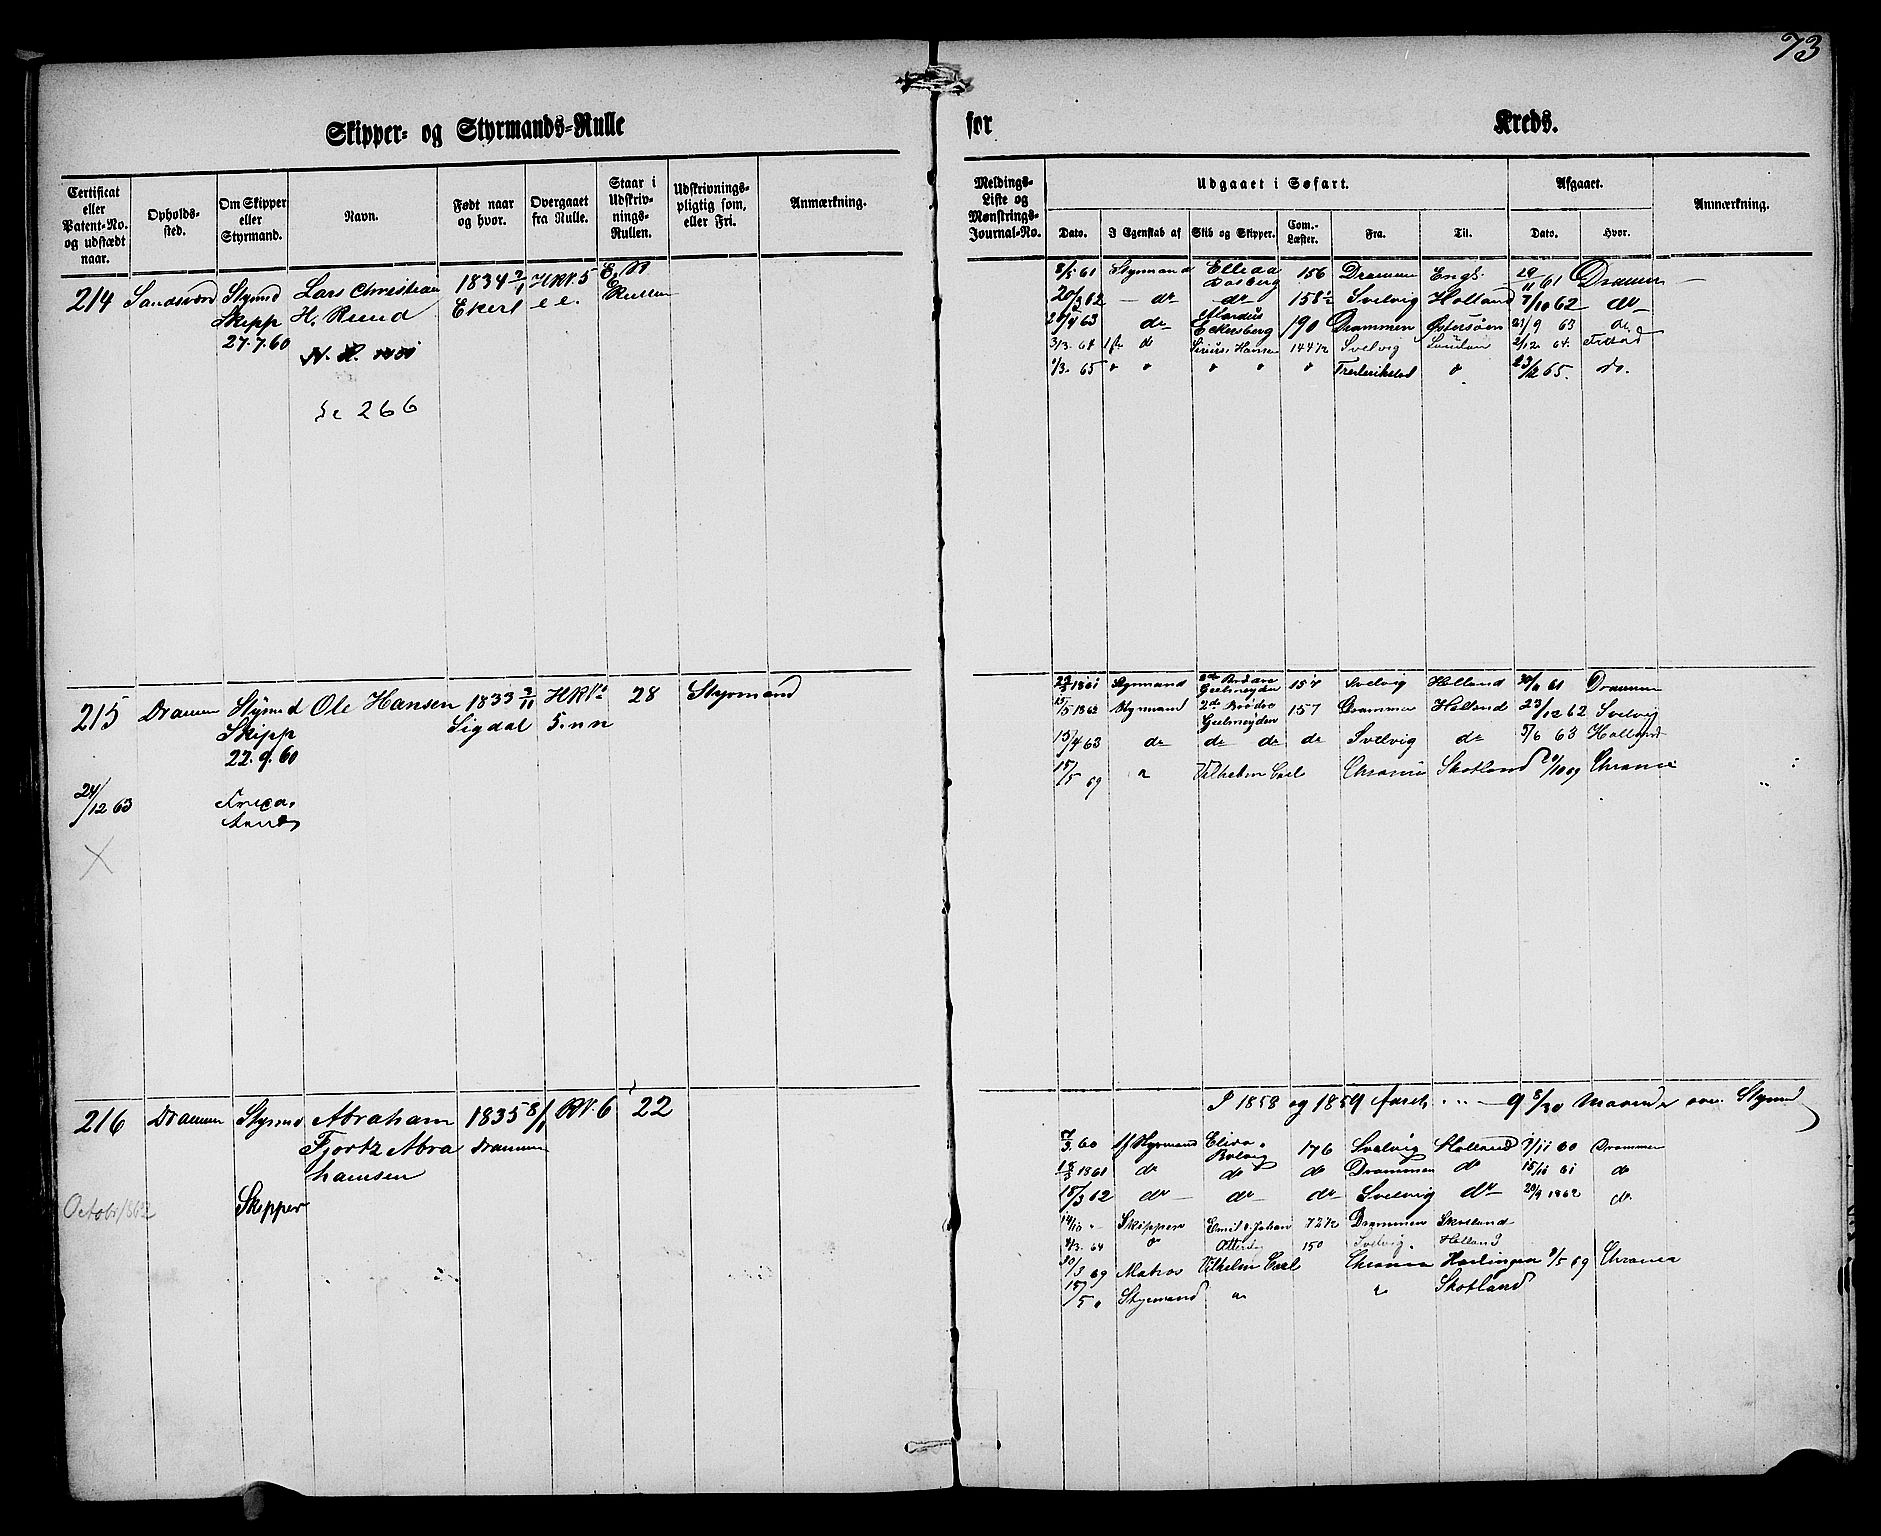 73
Skipper- og Styrmands-Rulle for Kreds.
Certificat eller Patent-No. og udstædt naar.
Opholds-sted.
Om Skipper eller Styrmand.
Navn.
Født naar og hvor.
Overgaaet fra Rulle.
Staar i Udskriv-nings-Rullen.
Udskrivnings-pligtig som, eller Fri.
Anmærkning.
Meldings-Liste og Mønstrings-Journal-No.
Udgaaet i Søfart.
Dato.
I Egenskab af
Skib og Skipper.
Com.-Læster.
Fra.
Til.
Afgaaet.
Dato.
Hvor.
Anmærkning.
214 Styrmd Lars Christian 1834 2/1 H RV. 5
Skipp H. Ruud Ekerl e e. Rullen
27.7.60
266
8/5 61 Styrmand Ellida 156 Drammen Engl. 61 Drammen
20/3 62 — do do 158½ Svelvig Holland 7/10 62 do
63 do Eckersberg 190 Drammen Østersøen 23/9 63 do
3/3. 64 do Sirius, Hansen 144½ Svelvig London 2/12 64.
1/3. 65 " " " " " Frederikstad " 23/12 65. do.
215 Drammen Styrmd Ole Hansen 1833 3/11 H RV. 28 Styrmand
Skipp Sigdal 5. n n
22.9.60
24/12 63
1861 Styrmand Geelmeyden 157 Svelvig Holland 61 Drammen
15/5 1862 Styrmand 2de Brødre Geelmeyden 157 Drammen Holland 23/12 62 Svelvig
15/4 63 do do do do Svelvig do 5/6 63 Holland
15/5 69 " Vilhelm Carl Chrania Skotland 20/10 69 Chrania
216 Drammen Styrmd Abraham 1835 8/1 RV. 6 22
Fjortz Abra Drammen
hamsen
Octobr 1862 Skipper
I 1858 og 1859 9 8/30 Maaneder som Styrmd
7/3. 60 Styrmand Elisa Bolvig 176 Svelvig Holland 60 Drammen
1861 do do do Drammen do 15/11 61 do
15/3 62 do do do Svelvig do 29/9 1862 do
14/10 " Skipper Emil & Johan 72½ Drammen Skotland
4/3. 64 " 150 Svelvig. Holland
30/3 69 Matros Vilhelm Carl Chrania Harlingen 9/5 69 Chrania
15/5 " Styrmand " " Skotland